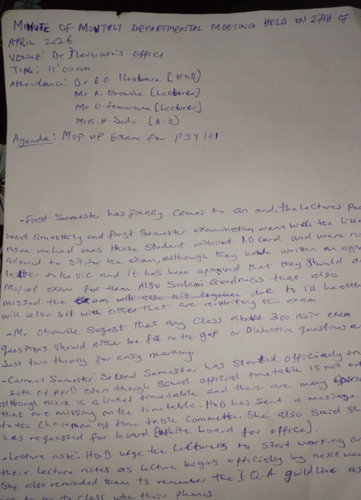 MINUTE OF MONTHLY DEPARTMENTAL MEETING HOLD ON 27TH OF
APRIL 2026
VENUE: Dr Iloubari's Office
TIME: 11:00am
Attendance: Dr E.O (HOD)
Mr A. [Lecturer]
Mr O. Famuwara [Lecturer]
Miss. H. [A.O]
Agenda: Mop up Exam for PSY 121
- First Semester has finally comes to an end, The lectures
went smoothly and first semester examination went with the little
issue was those Student without I.D card and were not
allowed to sit for the exam, although they have written an
letter to the V.C and it has been approved that they should do
Mop-up exam for them Also Salami Goodness that also
missed the exam due to ill health
will also sit with other that are rewriting the exam.
- Mr. Suggest that any Class above 300 their exam
questions should either be fill in the gap or Objective questions
Just theory for easy marking.
- Current Semester: Second Semester has Started officially on
20th of April even though School official timetable is not out
although there is a timetable and there are many
that are missing on the timetable. HOD has send a message
to the Chairman of time table Committee. She also said She
has requested for board (white board for office).
- Lecture note: HOD urge the lecturers to Start working on
their lecture notes as lecture begins officially by next week
She also reminded them to remember the I.Q.A guild line
to go to class with their phones.